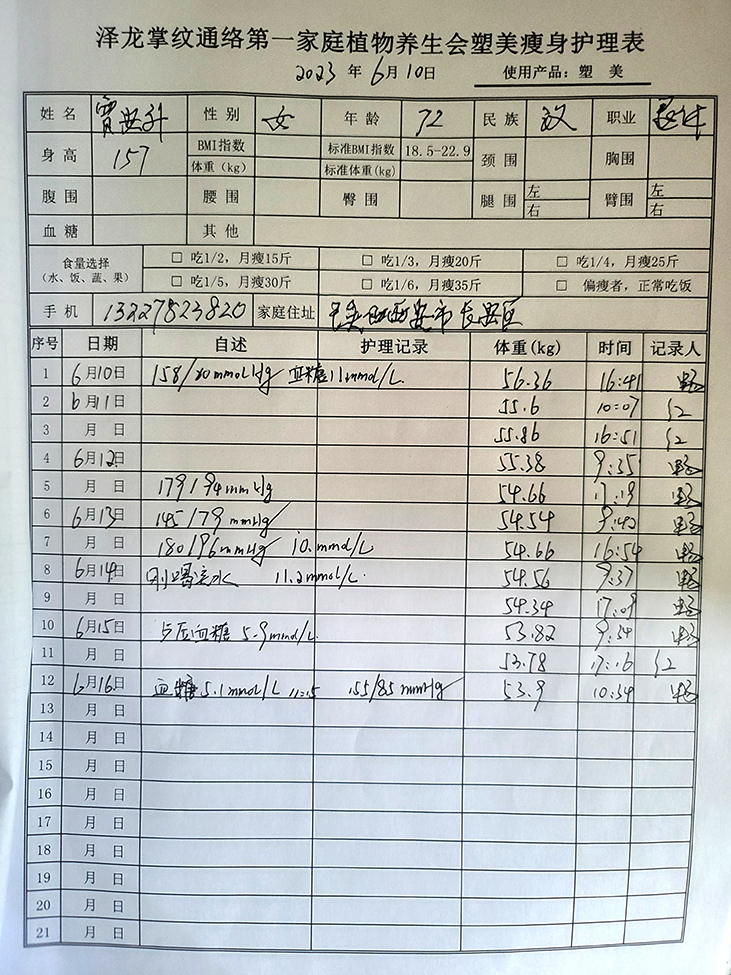 泽龙掌纹通络第一家庭植物养生会塑美瘦身护理表
2023 年 6月10日 使用产品：塑 美
姓 名 性 别 女 年 龄 72 民 族 汉 职业 退休
身 高 157 BMI指数 标准BMI指数 18.5-22.9 颈 围 胸围
体重（kg） 标准体重(kg)
腹 围 腰 围 臀 围 腿 围 左 右 臂围 左 右
血 糖 其 他
食量选择 （水、饭、蔬、果） □ 吃1/2，月瘦15斤 □ 吃1/3，月瘦20斤 □ 吃1/4，月瘦25斤
□ 吃1/5，月瘦30斤 □ 吃1/6，月瘦35斤 □ 偏瘦者，正常吃饭
手 机 13227823820 家庭住址 西安市长安区
序号 日期 自述 护理记录 体重(kg) 时间 记录人
1 6月10日 158/80mmolHg 血糖11mmol/L. 56.36 16:41
2 6月11日 55.6 10:07
3 月 日 55.86 16:51
4 6月12日 55.38 9:35
5 月 日 179/94mmHg 54.66 17:19
6 6月13日 145/79mmHg 54.54 9:42
7 月 日 180/96mmHg 10.mmol/L 54.66 16:54
8 6月14日 刚喝完水 11.2mmol/L. 54.56 9:37
9 月 日 54.34 17:09
10 6月15日 血糖 5.9mmol/L. 53.82 9:54
11 月 日 53.78 17:16
12 6月16日 血糖5.1mmol/L 155/85mmHg 53.9 10:34
13 月 日
14 月 日
15 月 日
16 月 日
17 月 日
18 月 日
19 月 日
20 月 日
21 月 日